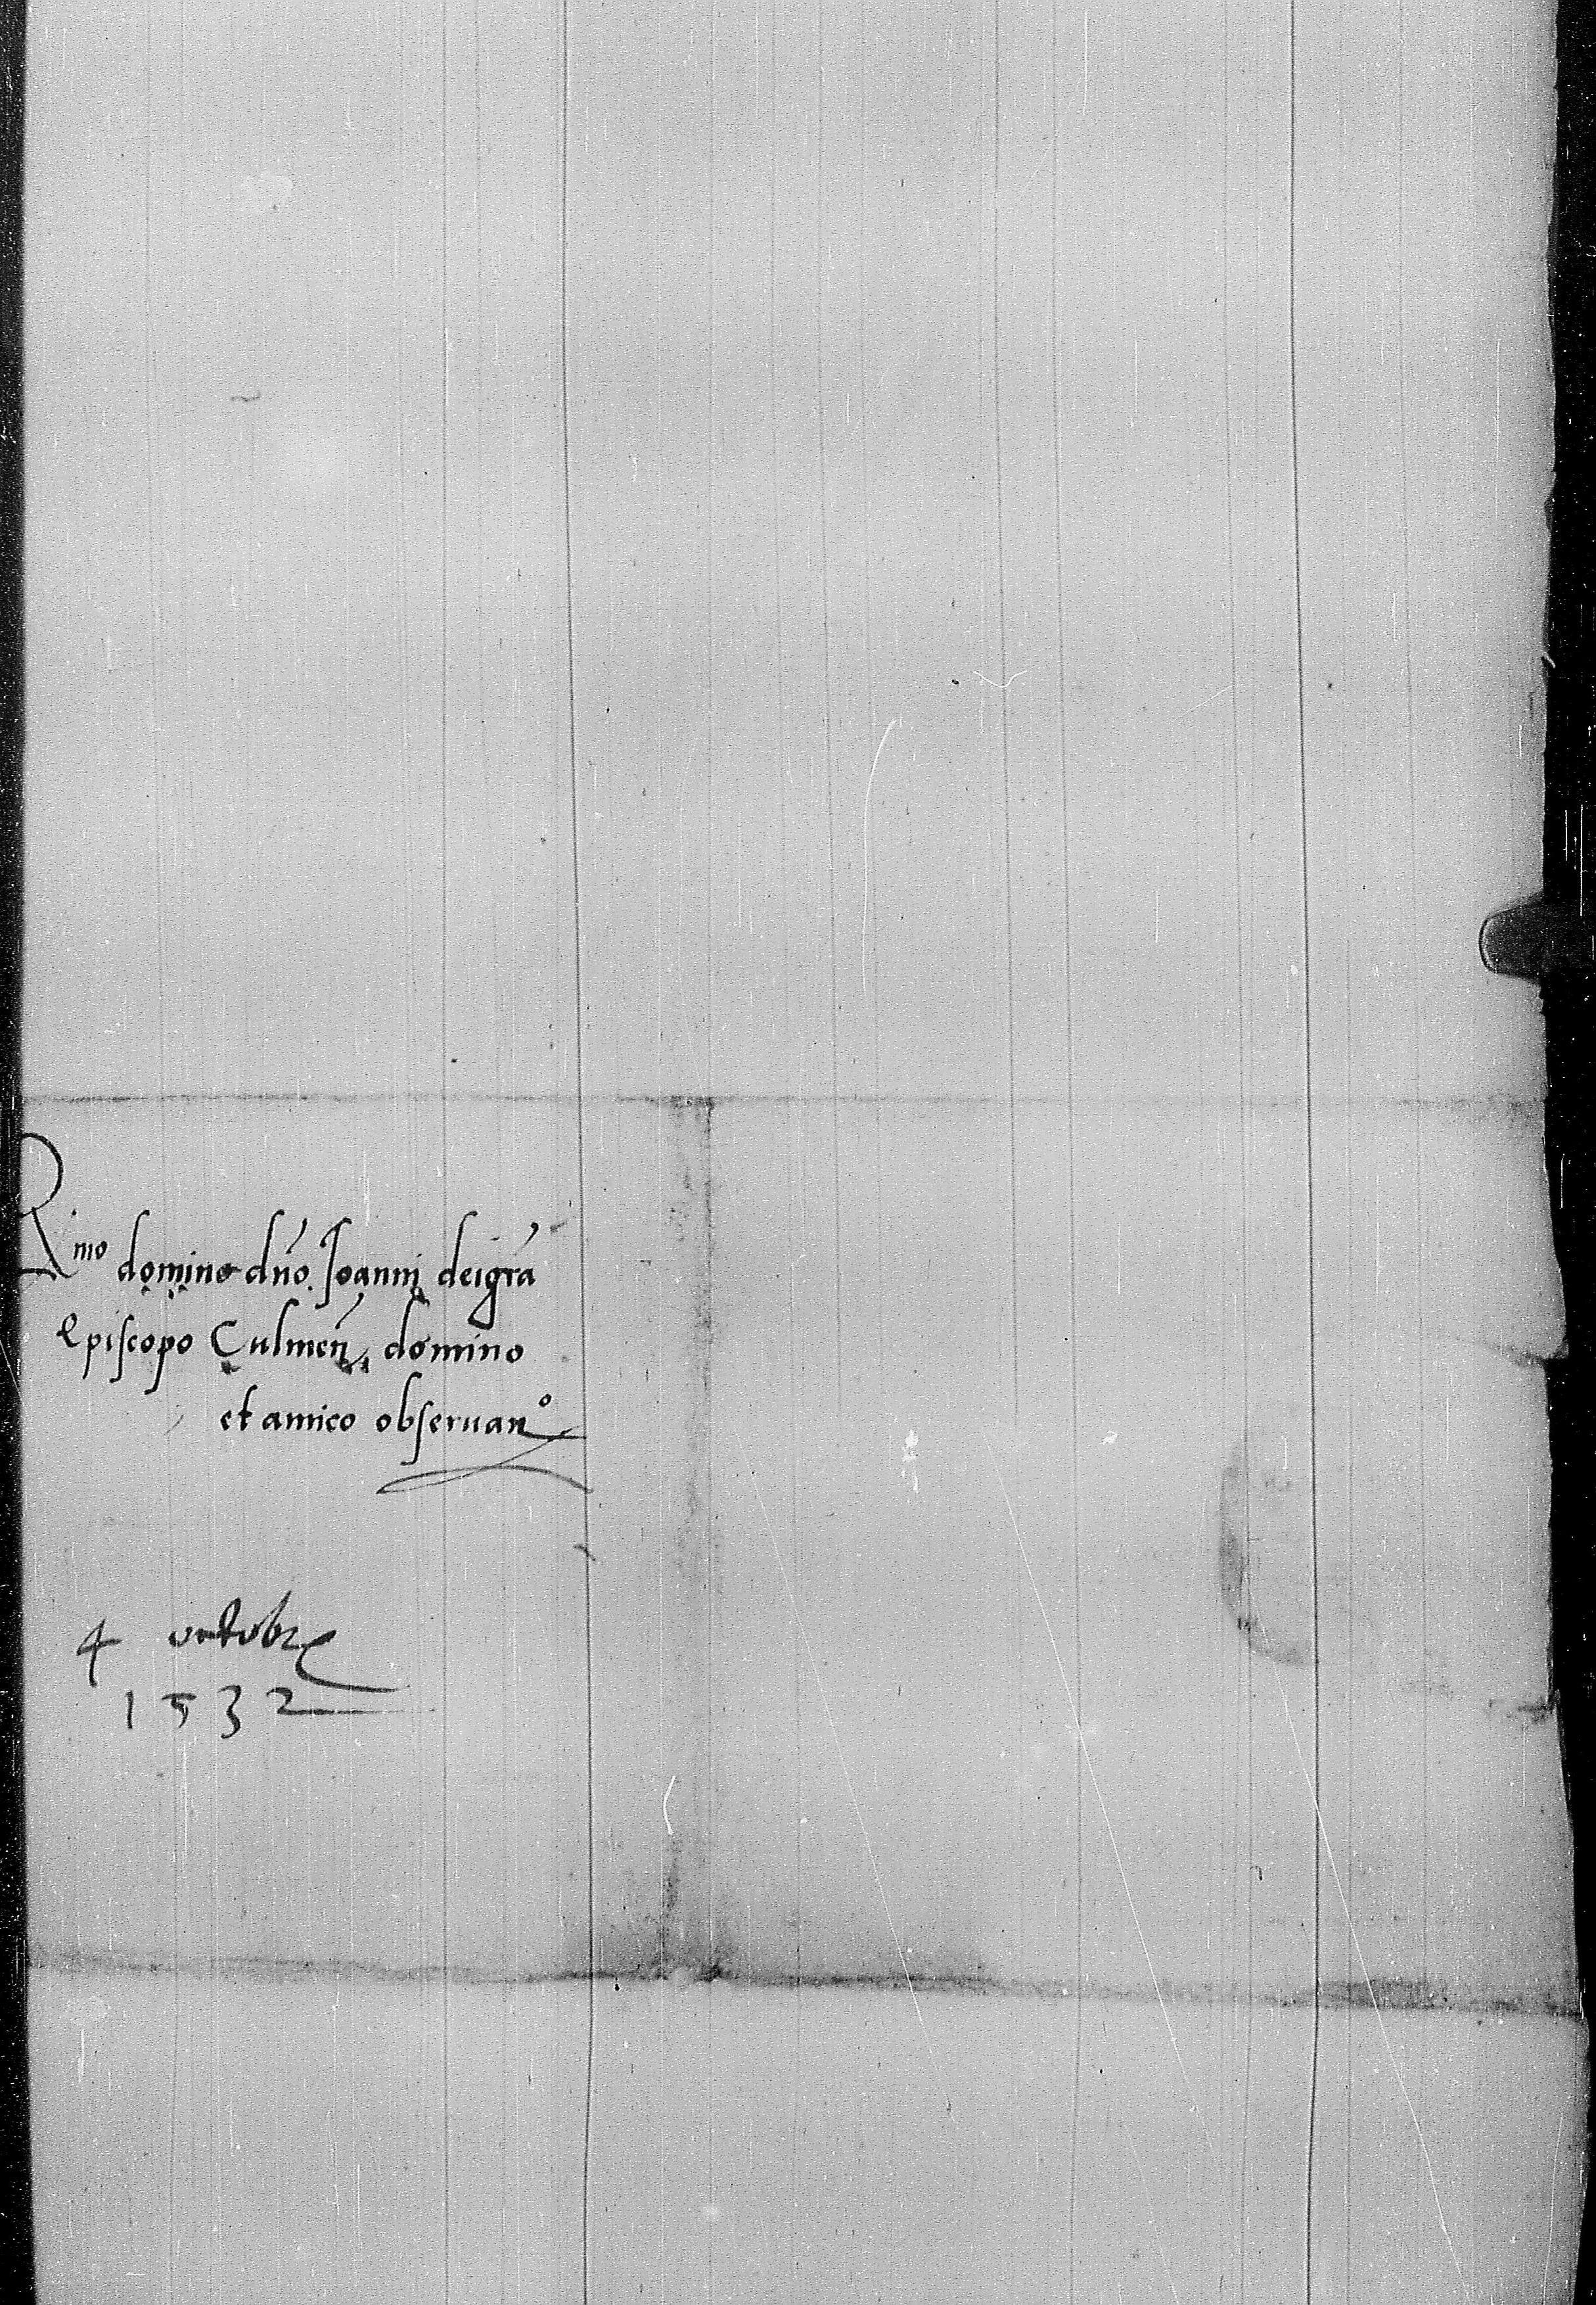 Rmo domino dno Ioanni dei gra
Episcopo Culmen, domino
et amico obseruan°
4 octobr
1532